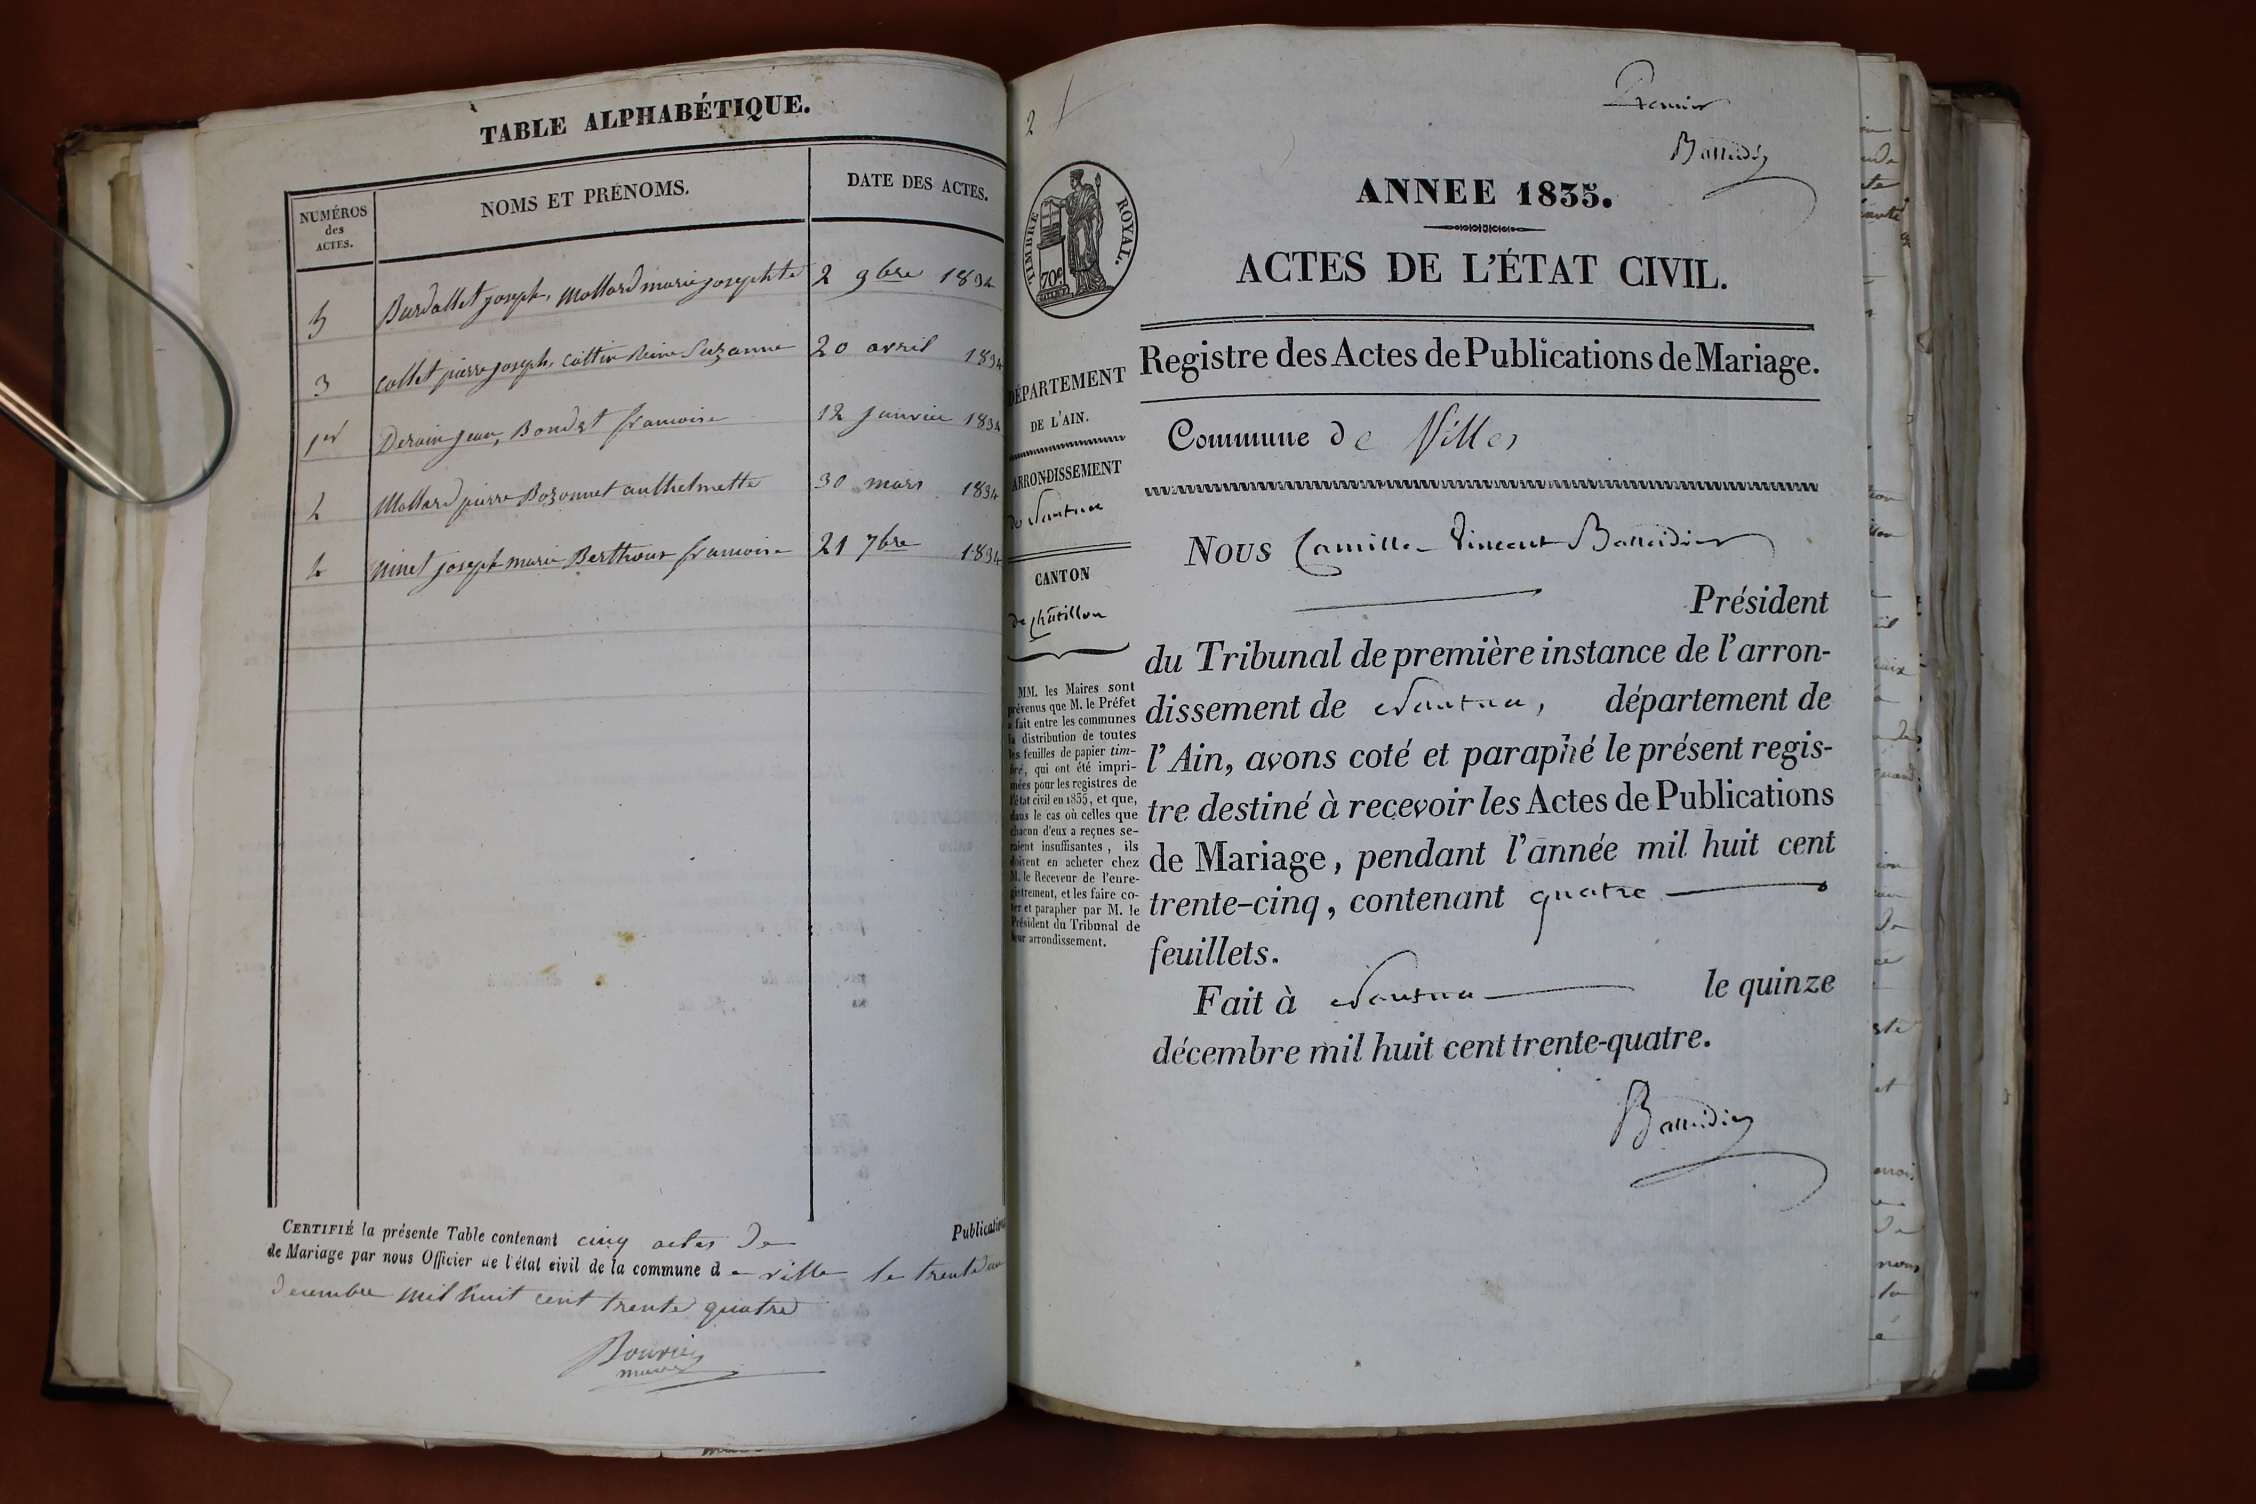 TABLE ALPHABÉTIQUE.
NUMÉROS
des
ACTES.
NOMS ET PRÉNOMS.
DATE DES ACTES.
5 Burdallet joseph, Mollard marie josephte 2 9bre 1834
3 Collet pierre joseph, Cottin Reine Suzanne 20 avril 1834
1er Derain jean, Bondet francoise 12 janvier 1834
2 Mollard pierre Bozonnet anthelmette 30 mars 1834
4 Ninet joseph marie Berthoux francoise 21 7bre 1834
CERTIFIÉ la présente Table contenant cinq actes de Publications
de Mariage par nous Officier de l'état civil de la commune de ville le trente un
decembre mil huit cent trente quatre
Bouvier
maire
2
Premier
Balleidier
TIMBRE ROYAL.
70c
ANNEE 1835.
ACTES DE L'ÉTAT CIVIL.
Registre des Actes de Publications de Mariage.
DÉPARTEMENT
DE L'AIN.
ARRONDISSEMENT
de Nantua
CANTON
de Châtillon
MM. les Maires sont
prévenus que M. le Préfet
a fait entre les communes
la distribution de toutes
les feuilles de papier tim-
bré, qui ont été impri-
mées pour les registres de
l'état civil en 1835, et que,
dans le cas où celles que
chacun d'eux a reçues se-
raient insuffisantes, ils
doivent en acheter chez
M. le Receveur de l'enre-
gistrement, et les faire co-
ter et parapher par M. le
Président du Tribunal de
leur arrondissement.
Commune de Villes
Nous Camille Vincent Balleidier
Président
du Tribunal de première instance de l'arron-
dissement de Nantua, département de
l'Ain, avons coté et paraphé le présent regis-
tre destiné à recevoir les Actes de Publications
de Mariage, pendant l'année mil huit cent
trente-cinq, contenant quatre
feuillets.
Fait à Nantua le quinze
décembre mil huit cent trente-quatre.
Balleidier